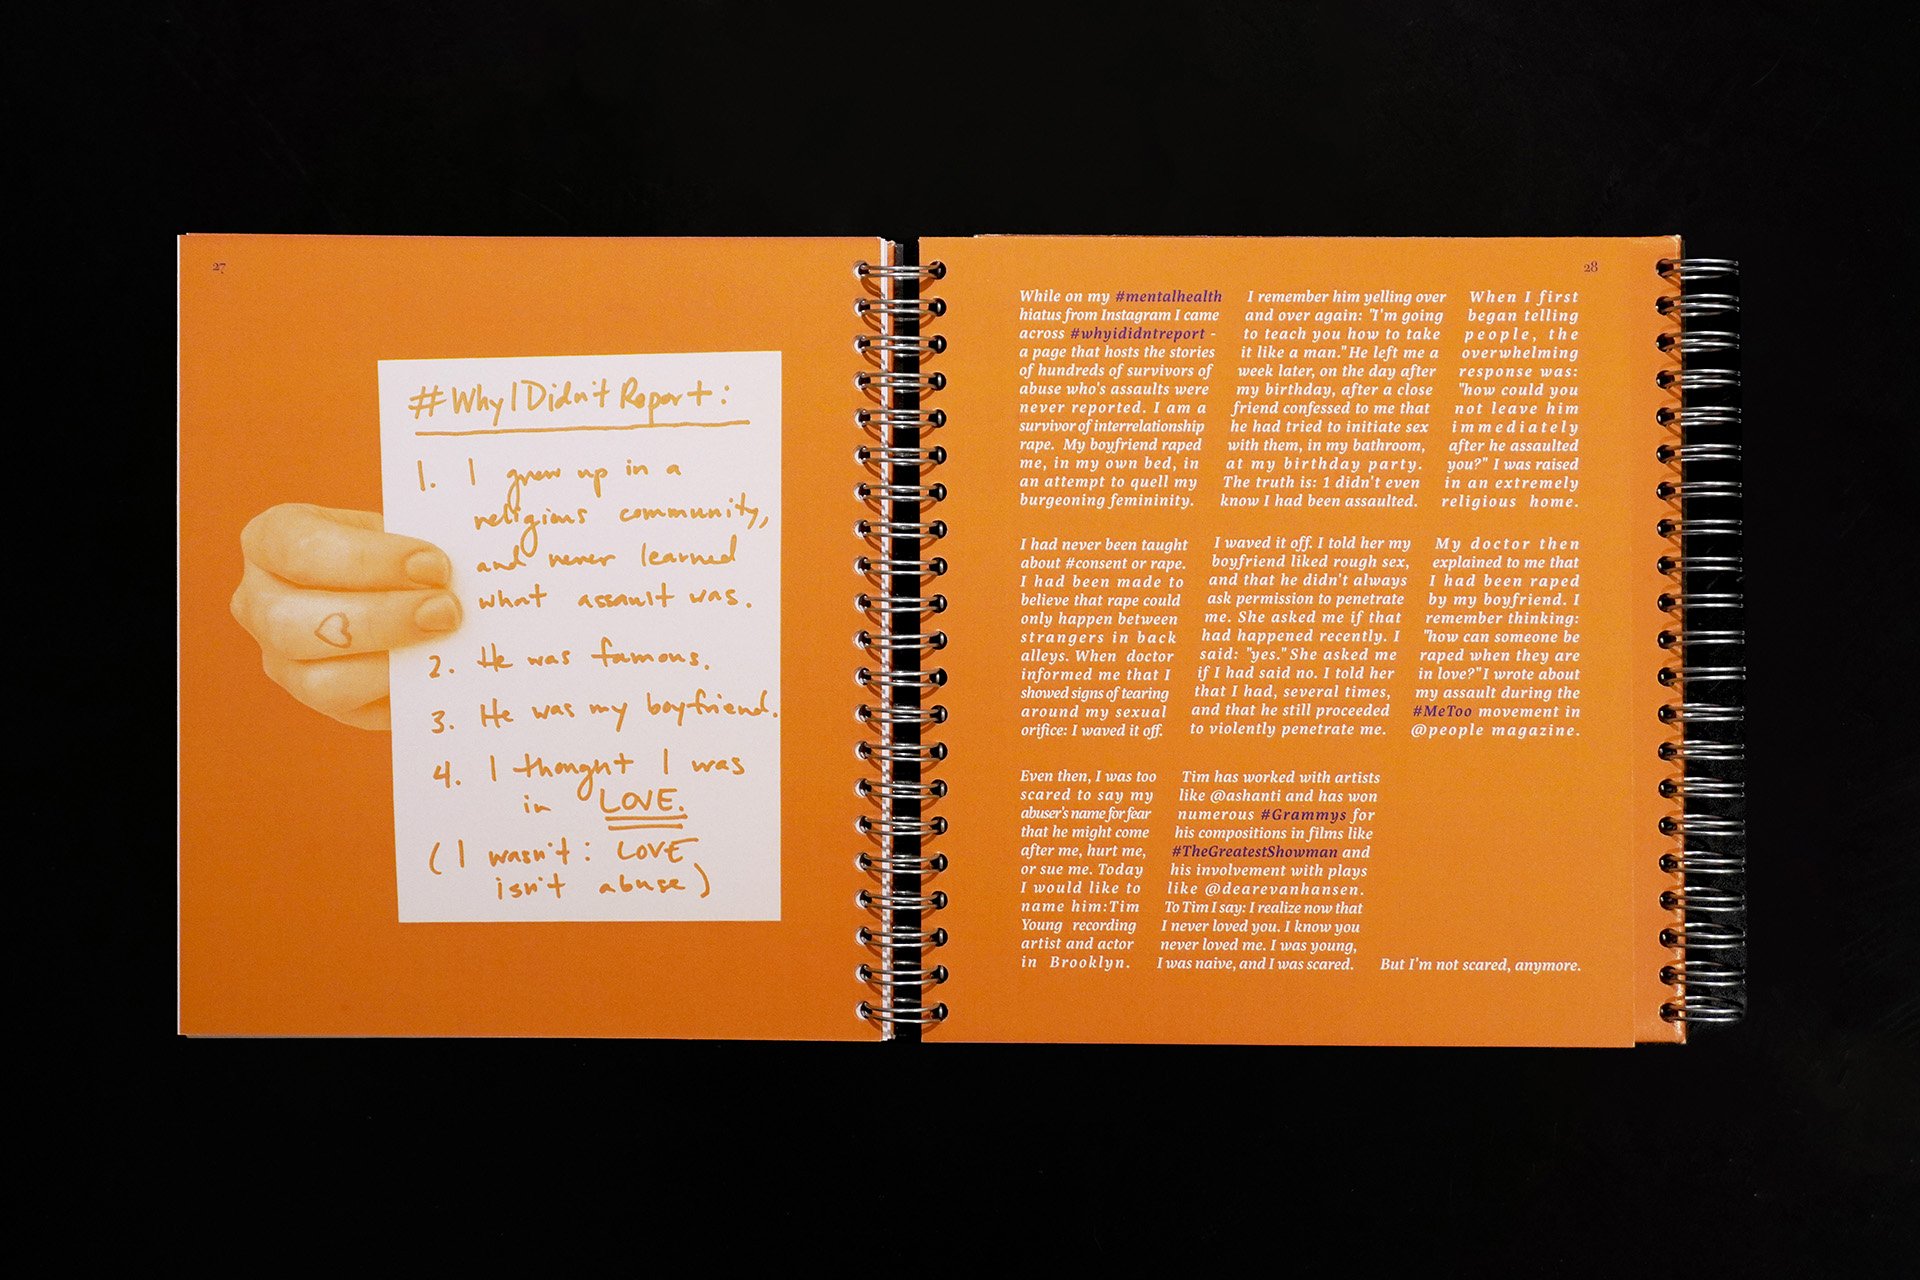 27
#WhyIDidn't Report:
1. I grew up in a
religious community,
and never learned
what assault was.
2. He was famous.
3. He was my boyfriend.
4. I thought I was
in LOVE.
(I wasn't: LOVE
isn't abuse)
28
While on my #mentalhealth
hiatus from Instagram I came
across #whyididntreport -
a page that hosts the stories
of hundreds of survivors of
abuse who's assaults were
never reported. I am a
survivor of interrelationship
rape. My boyfriend raped
me, in my own bed, in
an attempt to quell my
burgeoning femininity.
I remember him yelling over
and over again: "I'm going
to teach you how to take
it like a man." He left me a
week later, on the day after
my birthday, after a close
friend confessed to me that
he had tried to initiate sex
with them, in my bathroom,
at my birthday party.
The truth is: I didn't even
know I had been assaulted.
When I first
began telling
people, the
overwhelming
response was:
"how could you
not leave him
immediately
after he assaulted
you?" I was raised
in an extremely
religious home.
I had never been taught
about #consent or rape.
I had been made to
believe that rape could
only happen between
strangers in back
alleys. When doctor
informed me that I
showed signs of tearing
around my sexual
orifice: I waved it off.
I waved it off. I told her my
boyfriend liked rough sex,
and that he didn't always
ask permission to penetrate
me. She asked me if that
had happened recently. I
said: "yes." She asked me
if I had said no. I told her
that I had, several times,
and that he still proceeded
to violently penetrate me.
My doctor then
explained to me that
I had been raped
by my boyfriend. I
remember thinking:
"how can someone be
raped when they are
in love?" I wrote about
my assault during the
#MeToo movement in
@people magazine.
Even then, I was too
scared to say my
abuser's name for fear
that he might come
after me, hurt me,
or sue me. Today
I would like to
name him:Tim
Young recording
artist and actor
in Brooklyn.
Tim has worked with artists
like @ashanti and has won
numerous #Grammys for
his compositions in films like
#TheGreatestShowman and
his involvement with plays
like @dearevanhansen.
To Tim I say: I realize now that
I never loved you. I know you
never loved me. I was young,
I was naive, and I was scared.
But I'm not scared, anymore.